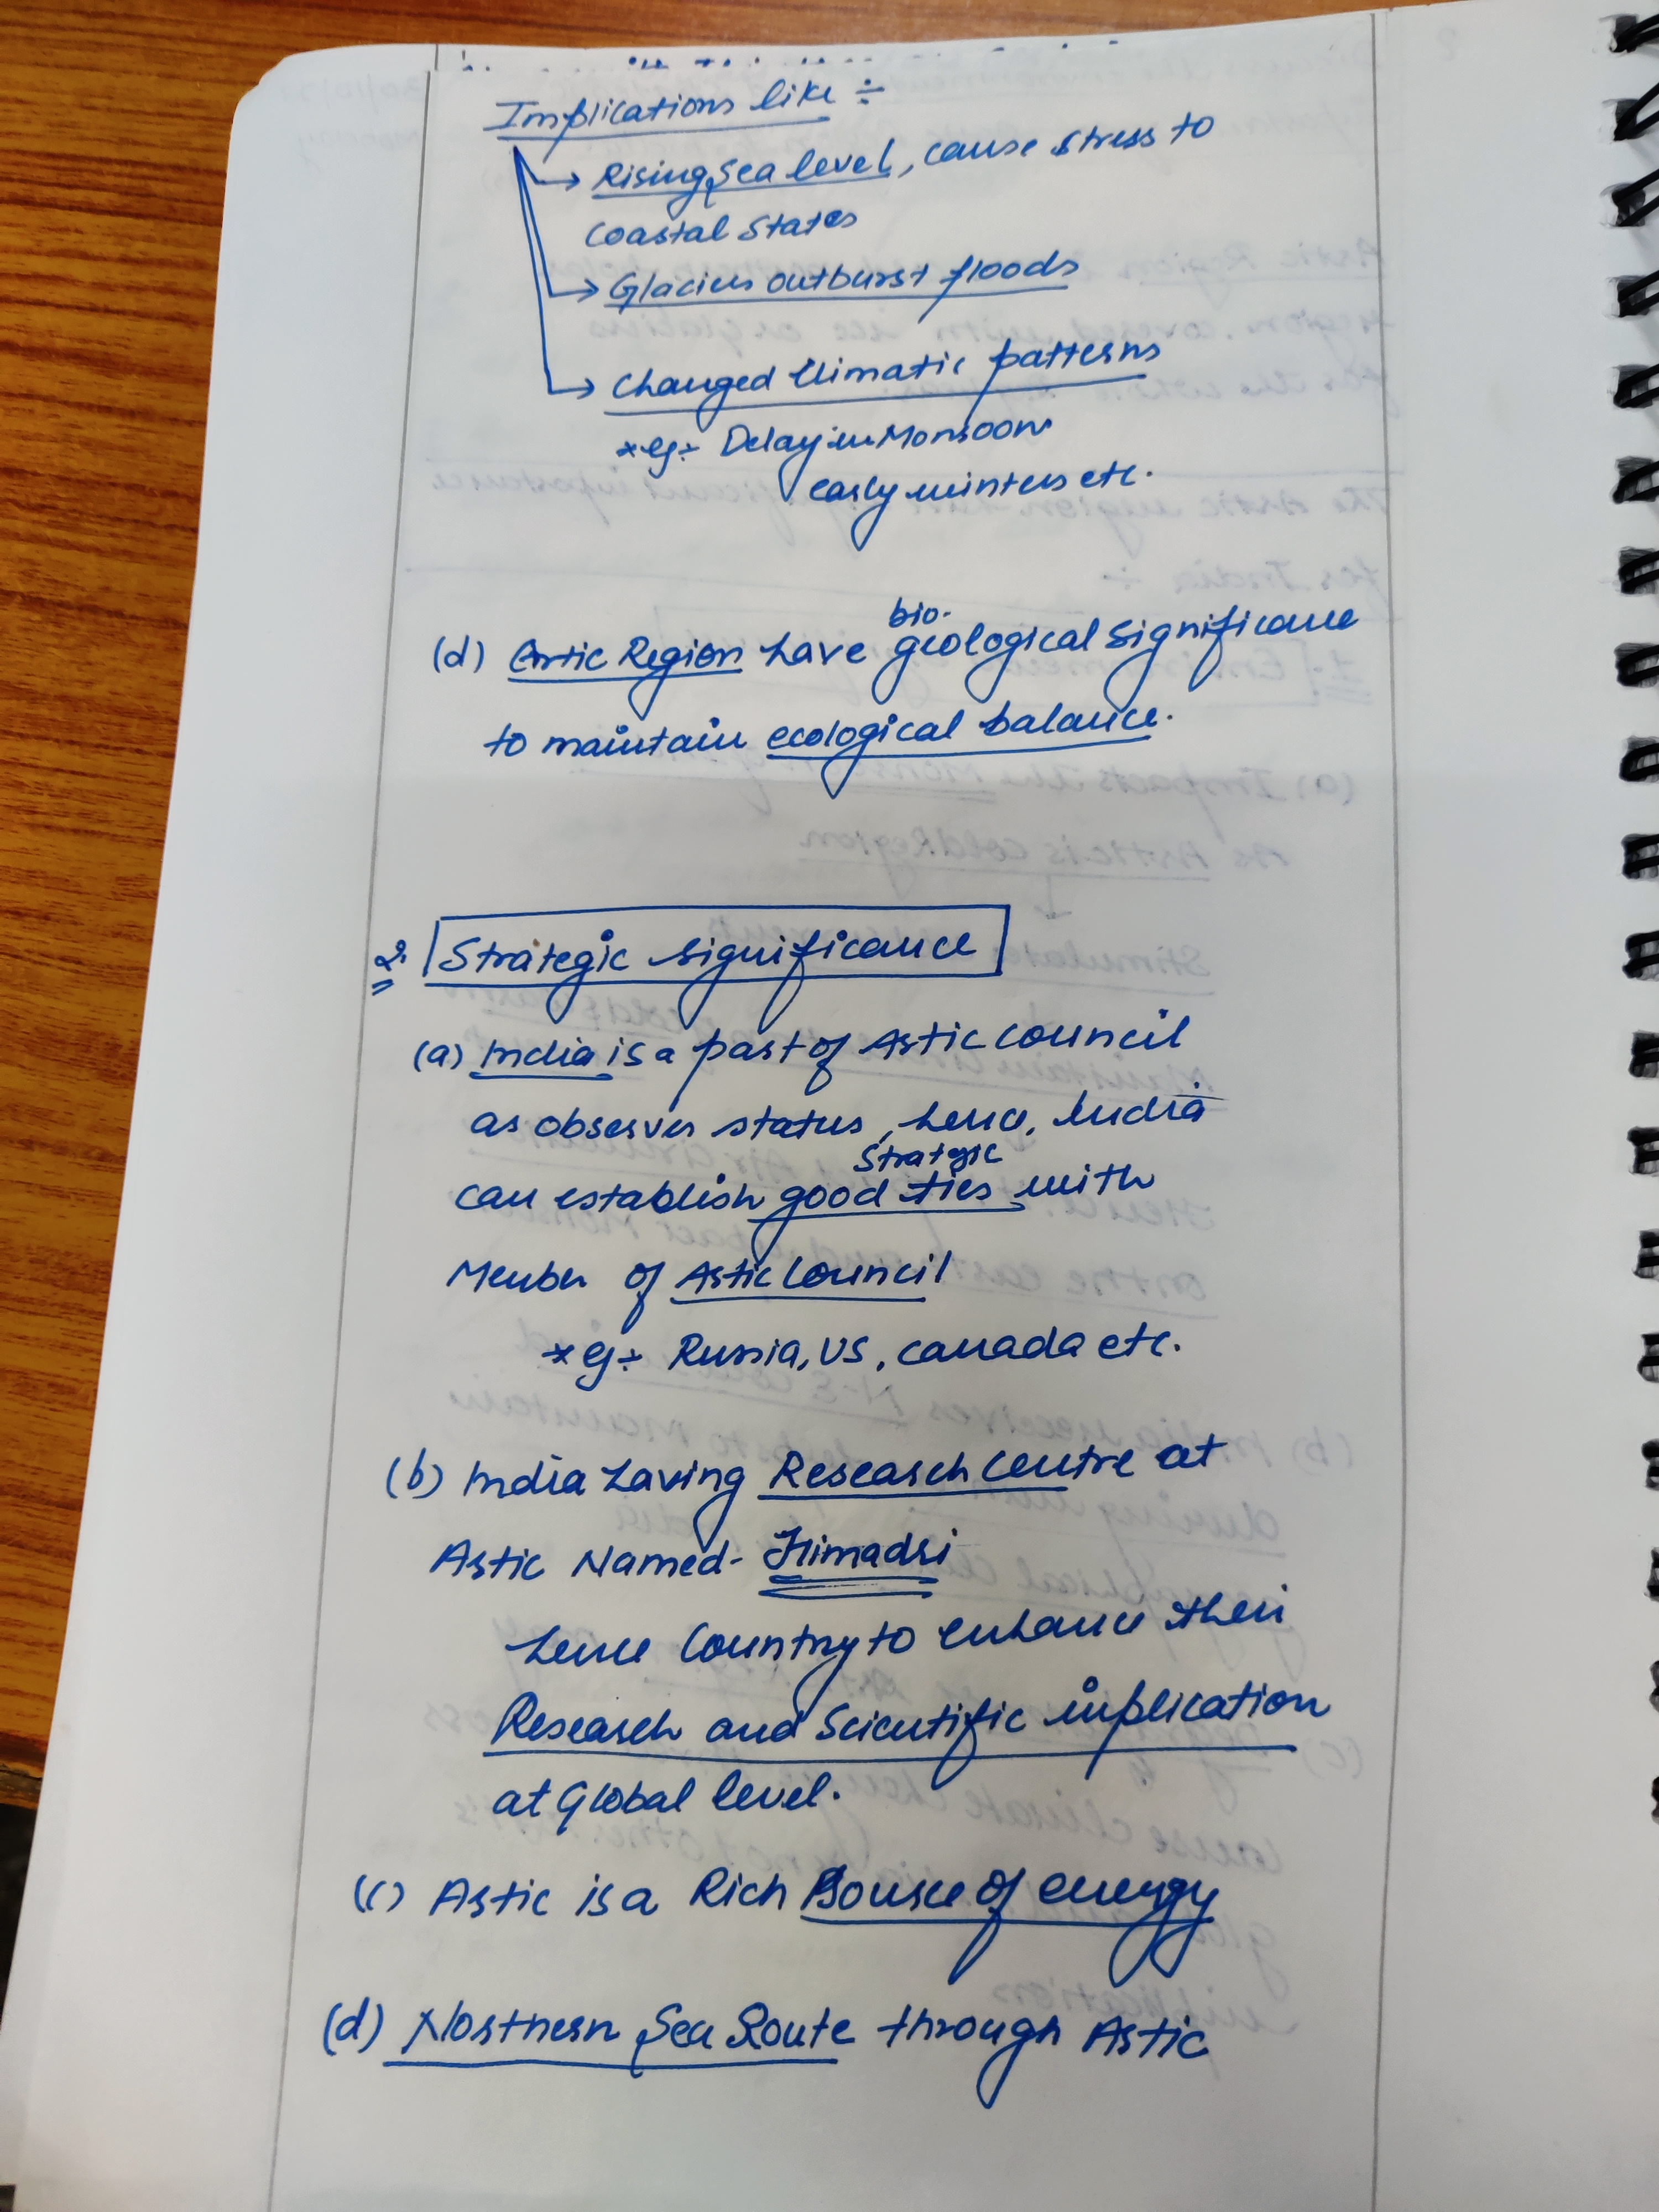 Implications like ÷
→ Rising sea level, cause stress to
coastal states
→ Glaciers outburst floods
→ Changed climatic patterns
*eg ÷ Delay in Monsoon
early winters etc.
(d) Arctic Region have bio-geological significance
to maintain ecological balance.
2. Strategic significance
(a) India is a part of Arctic council
as observer status, hence, India
can establish good strategic ties with
Member of Arctic Council
*eg ÷ Russia, US, Canada etc.
(b) India having Research centre at
Arctic Named - Himadri
hence country to enhance their
Research and Scientific implication
at Global level.
(c) Arctic is a Rich source of energy
(d) Northern Sea Route through Arctic